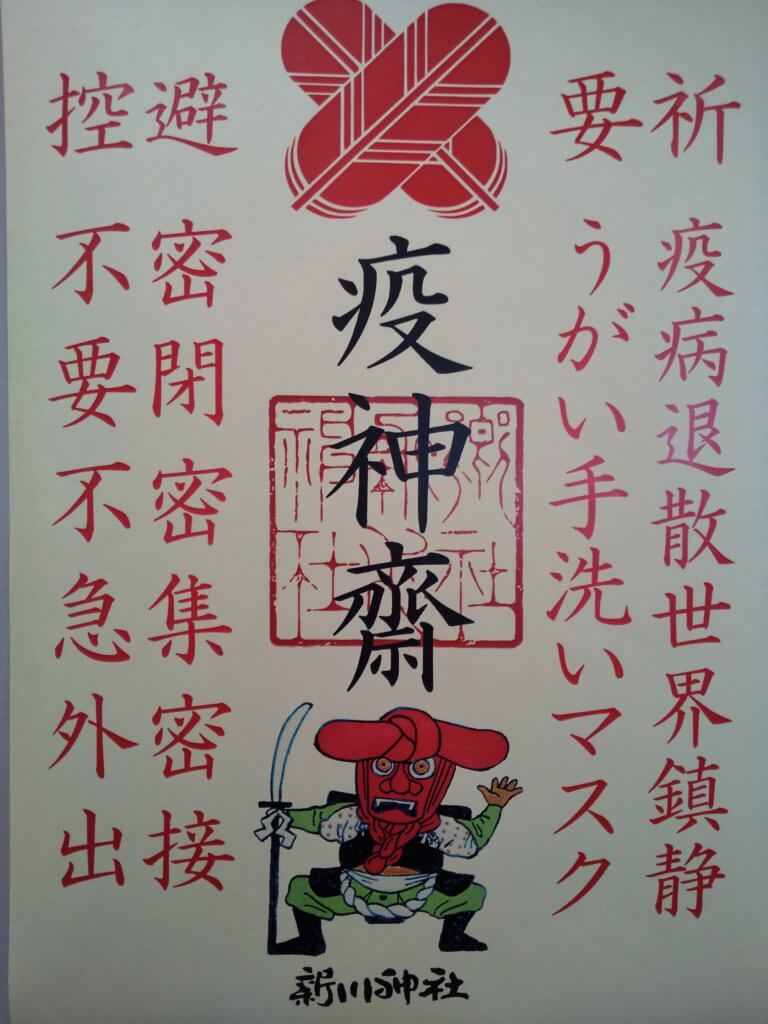 祈 疫病退散世界鎮静
要 うがい手洗いマスク
疫神齋
避 密閉密集密接
控 不要不急外出
新川神社